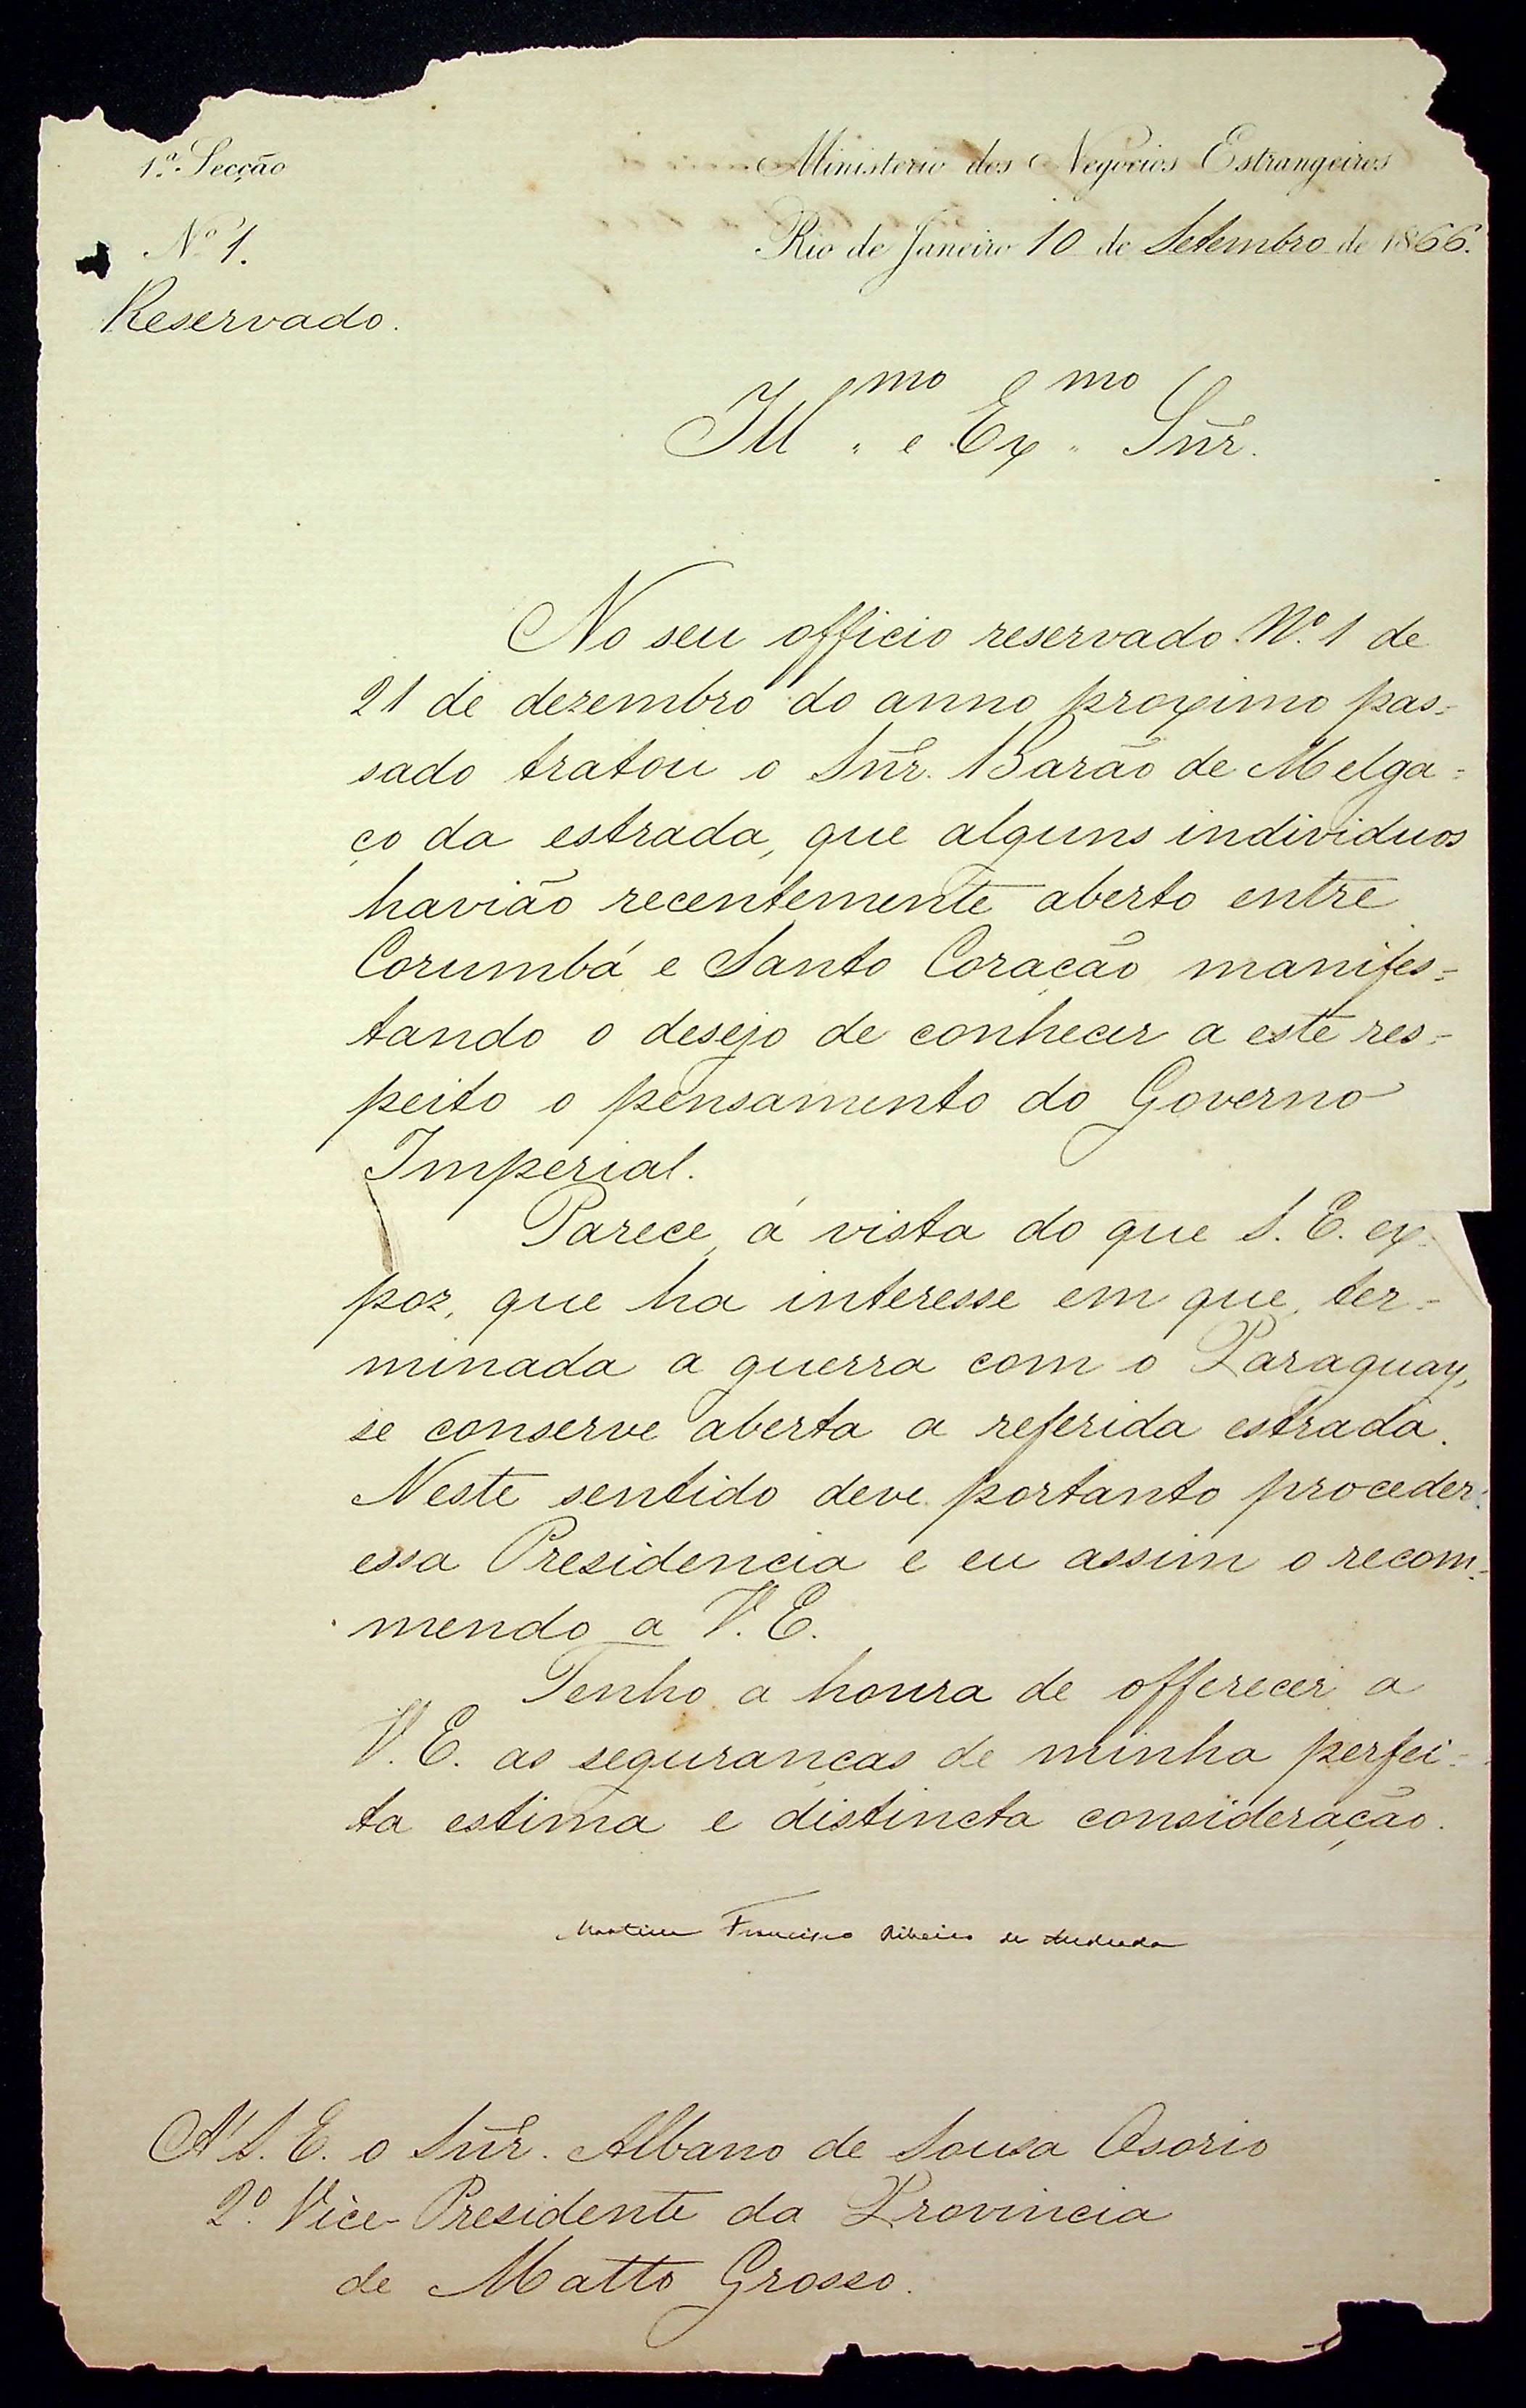 1.ª Secção
Ministerio dos Negocios Estrangeiros
Nº 1.
Rio de Janeiro 10 de Setembro de 1866.
Reservado.
Ill.mo e Ex.mo Snr.
No seu officio reservado Nº 1 de
21 de dezembro do anno proximo pas=
sado tratou o Snr. Barão de Melga=
ço da estrada, que alguns individuos
havião recentemente aberto entre
Corumbá e Santo Coração manifes=
tando o desejo de conhecer a este res=
peito o pensamento do Governo
Imperial.
Parece, á vista do que S. E. ex
poz, que ha interesse em que, ter=
minada a guerra com o Paraguay,
se conserve aberta a referida estrada.
Neste sentido deve portanto proceder
essa Presidencia e eu assim o recom=
mendo a V. E.
Tenho a honra de offerecer a
V. E. as seguranças de minha perfei=
ta estima e distincta consideração.
Martim Francisco Ribeiro de Andrada
A' S. E. o Snr. Albano de Sousa Osorio
2º Vice-Presidente da Provincia
de Matto Grosso.